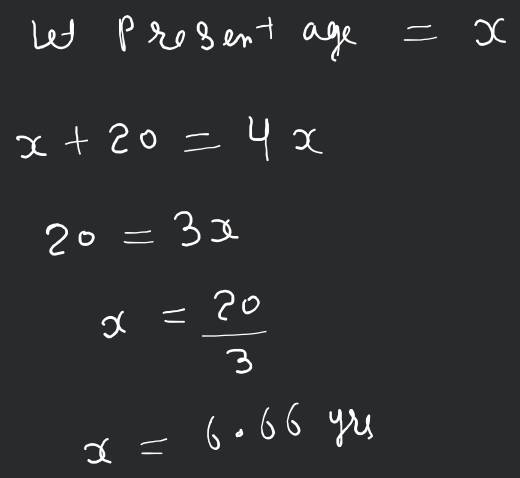 Let Present age = x
x + 20 = 4x
20 = 3x
x = 20/3
x = 6.66 yrs